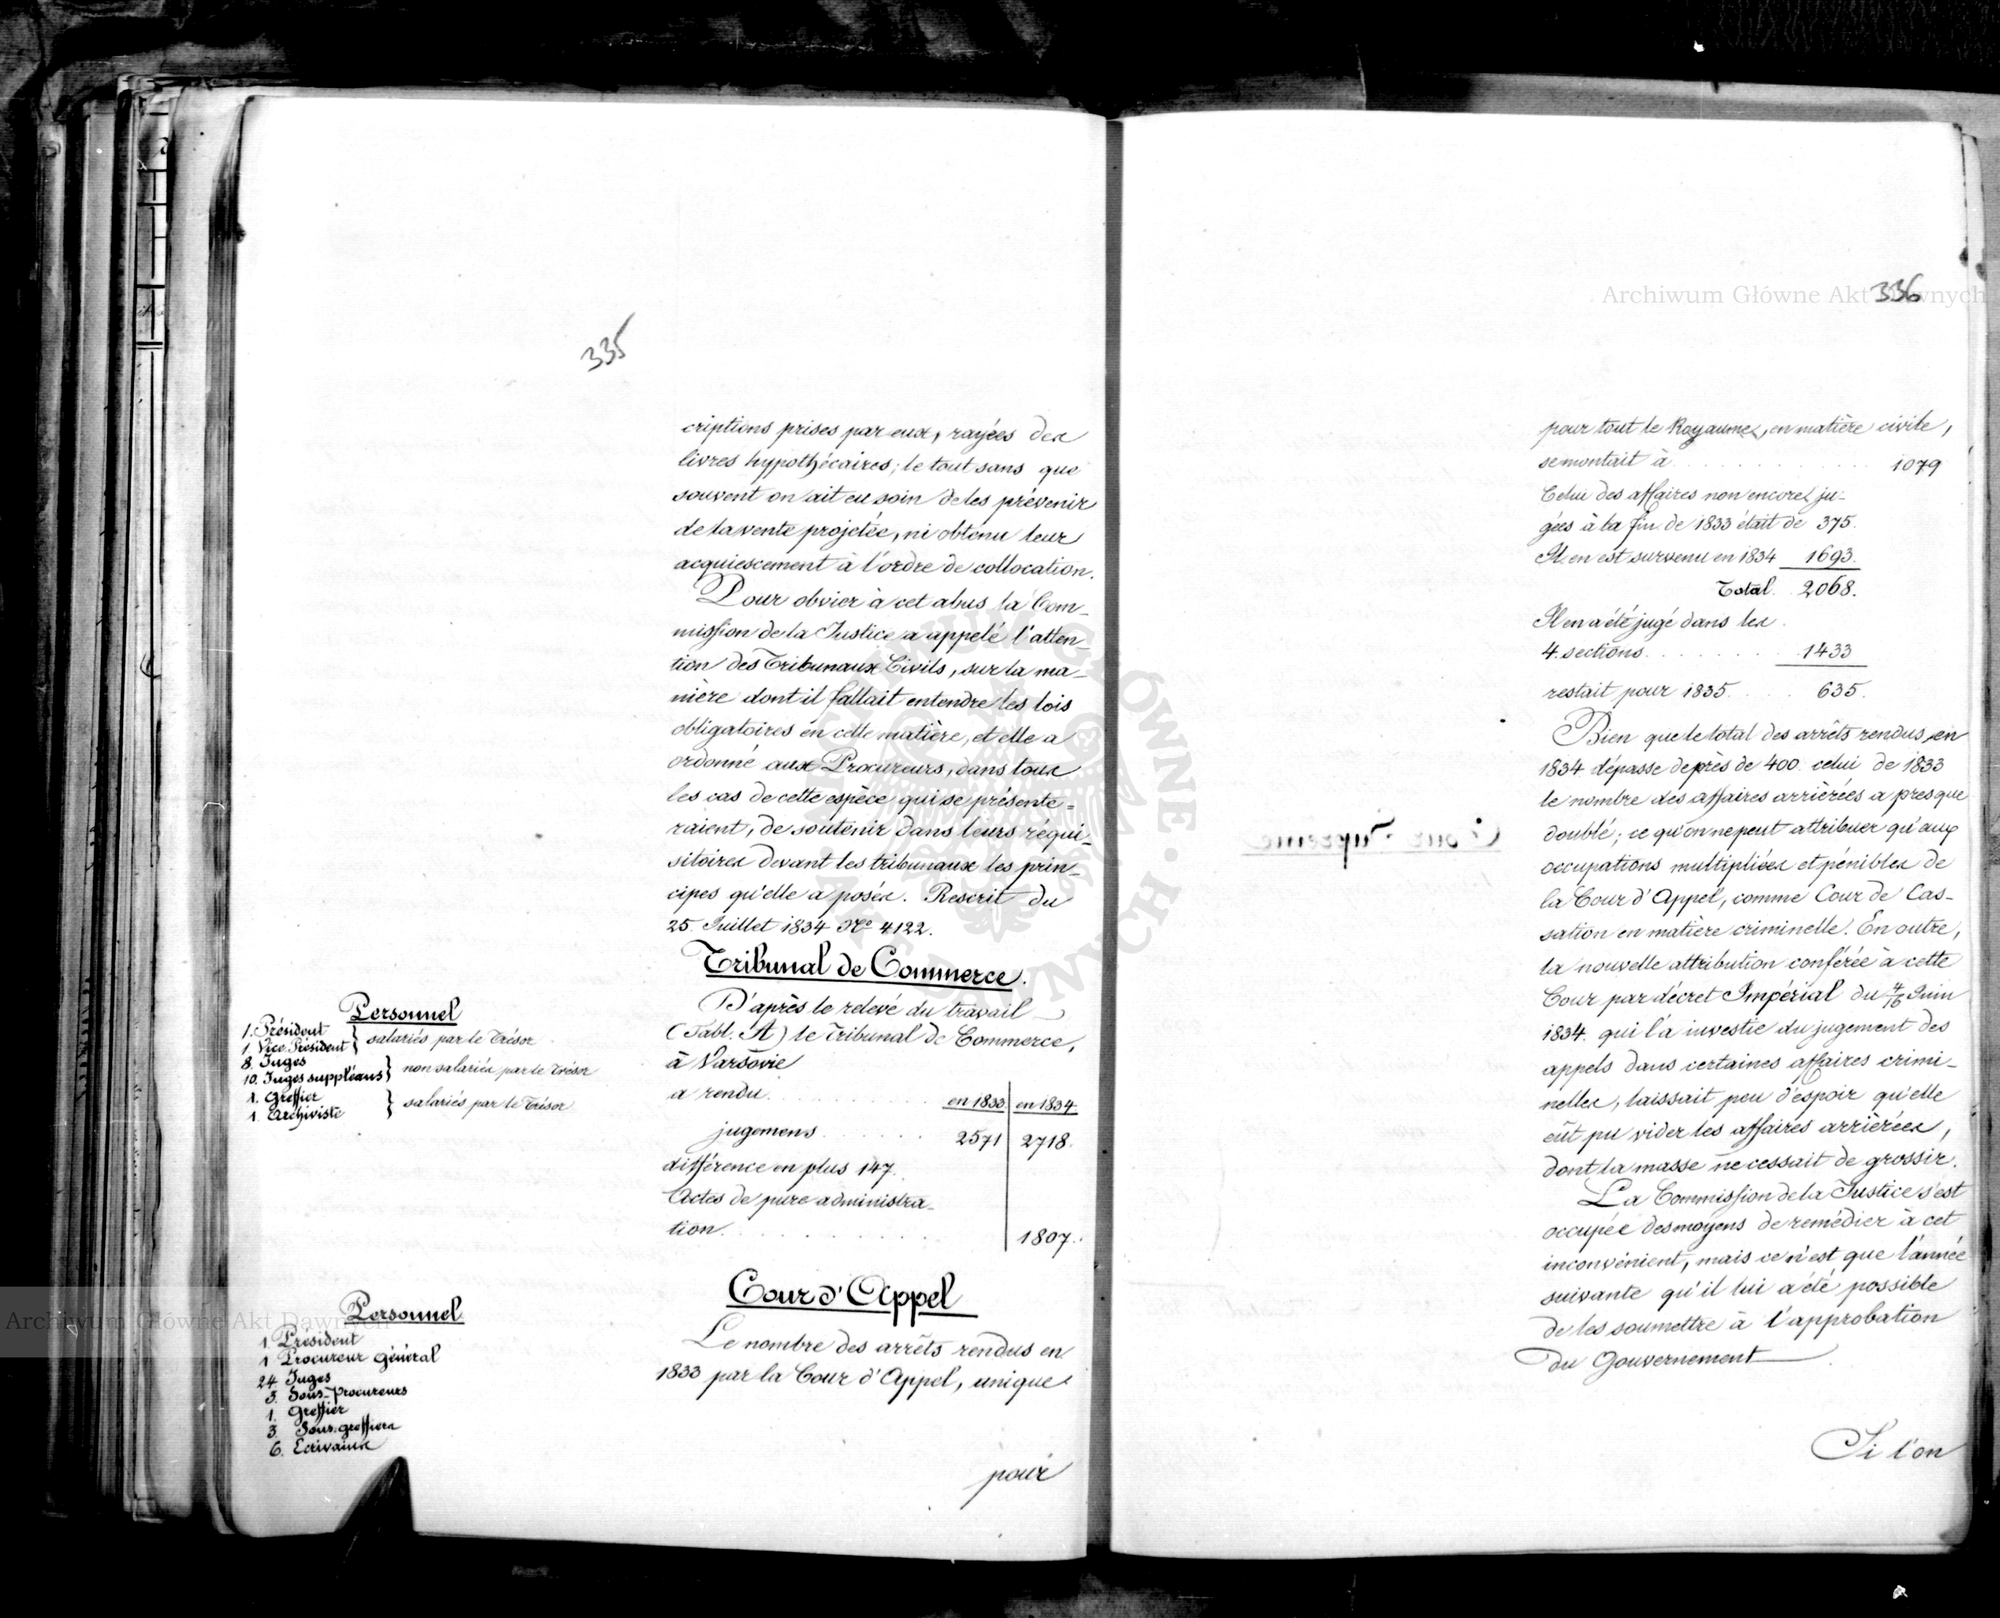 335
criptions prises par eux, rayées des
livres hypothécaires; le tout sans que
souvent on ait eu soin de les prévenir
de la vente projetée, ni obtenu leur
acquiescement à l'ordre de collocation.
Pour obvier à cet abus la Com-
mission de la Justice a appelé l'atten-
tion des Tribunaux Civils, sur la ma-
nière dont il fallait entendre les lois
obligatoires en cette matière, et elle a
ordonné aux Procureurs, dans tous
les cas de cette espèce qui se présente-
raient, de soutenir dans leurs réqui-
sitoires devant les tribunaux les prin-
cipes qu'elle a posés. Rescrit du
25. Juillet 1834 No 4122.
Tribunal de Commerce.
Personnel
1. Président
1 Vice-Président } salariés par le Trésor
8. Juges
10. Juges suppléans } non salariés par le Trésor
1. Greffier
1. Archiviste } salariés par le Trésor
D'après le relevé du travail
(Tabl. A) le Tribunal de Commerce,
à Varsovie
a rendu . . . . . . en 1833 en 1834
jugemens . . . . . . 2571 2718.
différence en plus 147.
Actes de pure administra-
tion . . . . . . 1807.
Cour d'Appel
Personnel
1. Président
1 Procureur Général
24 Juges
3. Sous-Procureurs
1. Greffier
3. Sous-greffiers
6. Ecrivains
Le nombre des arrêts rendus en
1833 par la Cour d'Appel, unique
pour
336
pour tout le Royaume, en matière civile,
se montait à . . . . . . 1079
Celui des affaires non encore ju-
gées à la fin de 1833 était de 375.
Il en est survenu en 1834 1693.
Total . . 2068.
Il en a été jugé dans les
4. sections . . . . . . 1433
restait pour 1835 . . . 635.
Bien que le total des arrêts rendus en
1834 dépasse de près de 400. celui de 1833
le nombre des affaires arriérées a presque
doublé; ce qu'on ne peut attribuer qu'aux
occupations multipliées et pénibles de
la Cour d'Appel, comme Cour de Cas-
sation en matière criminelle. En outre,
la nouvelle attribution conférée à cette
Cour par décret Impérial du 4/16 Juin
1834. qui l'a investie du jugement des
appels dans certaines affaires crimi-
nelles, laissait peu d'espoir qu'elle
eût pu vider les affaires arriérées,
dont la masse ne cessait de grossir.
La Commission de la Justice s'est
occupée des moyens de remédier à cet
inconvénient, mais ce n'est que l'année
suivante qu'il lui a été possible
de les soumettre à l'approbation
du Gouvernement
Si l'on
Archiwum Główne Akt Dawnych
Archiwum Główne Akt Dawnych